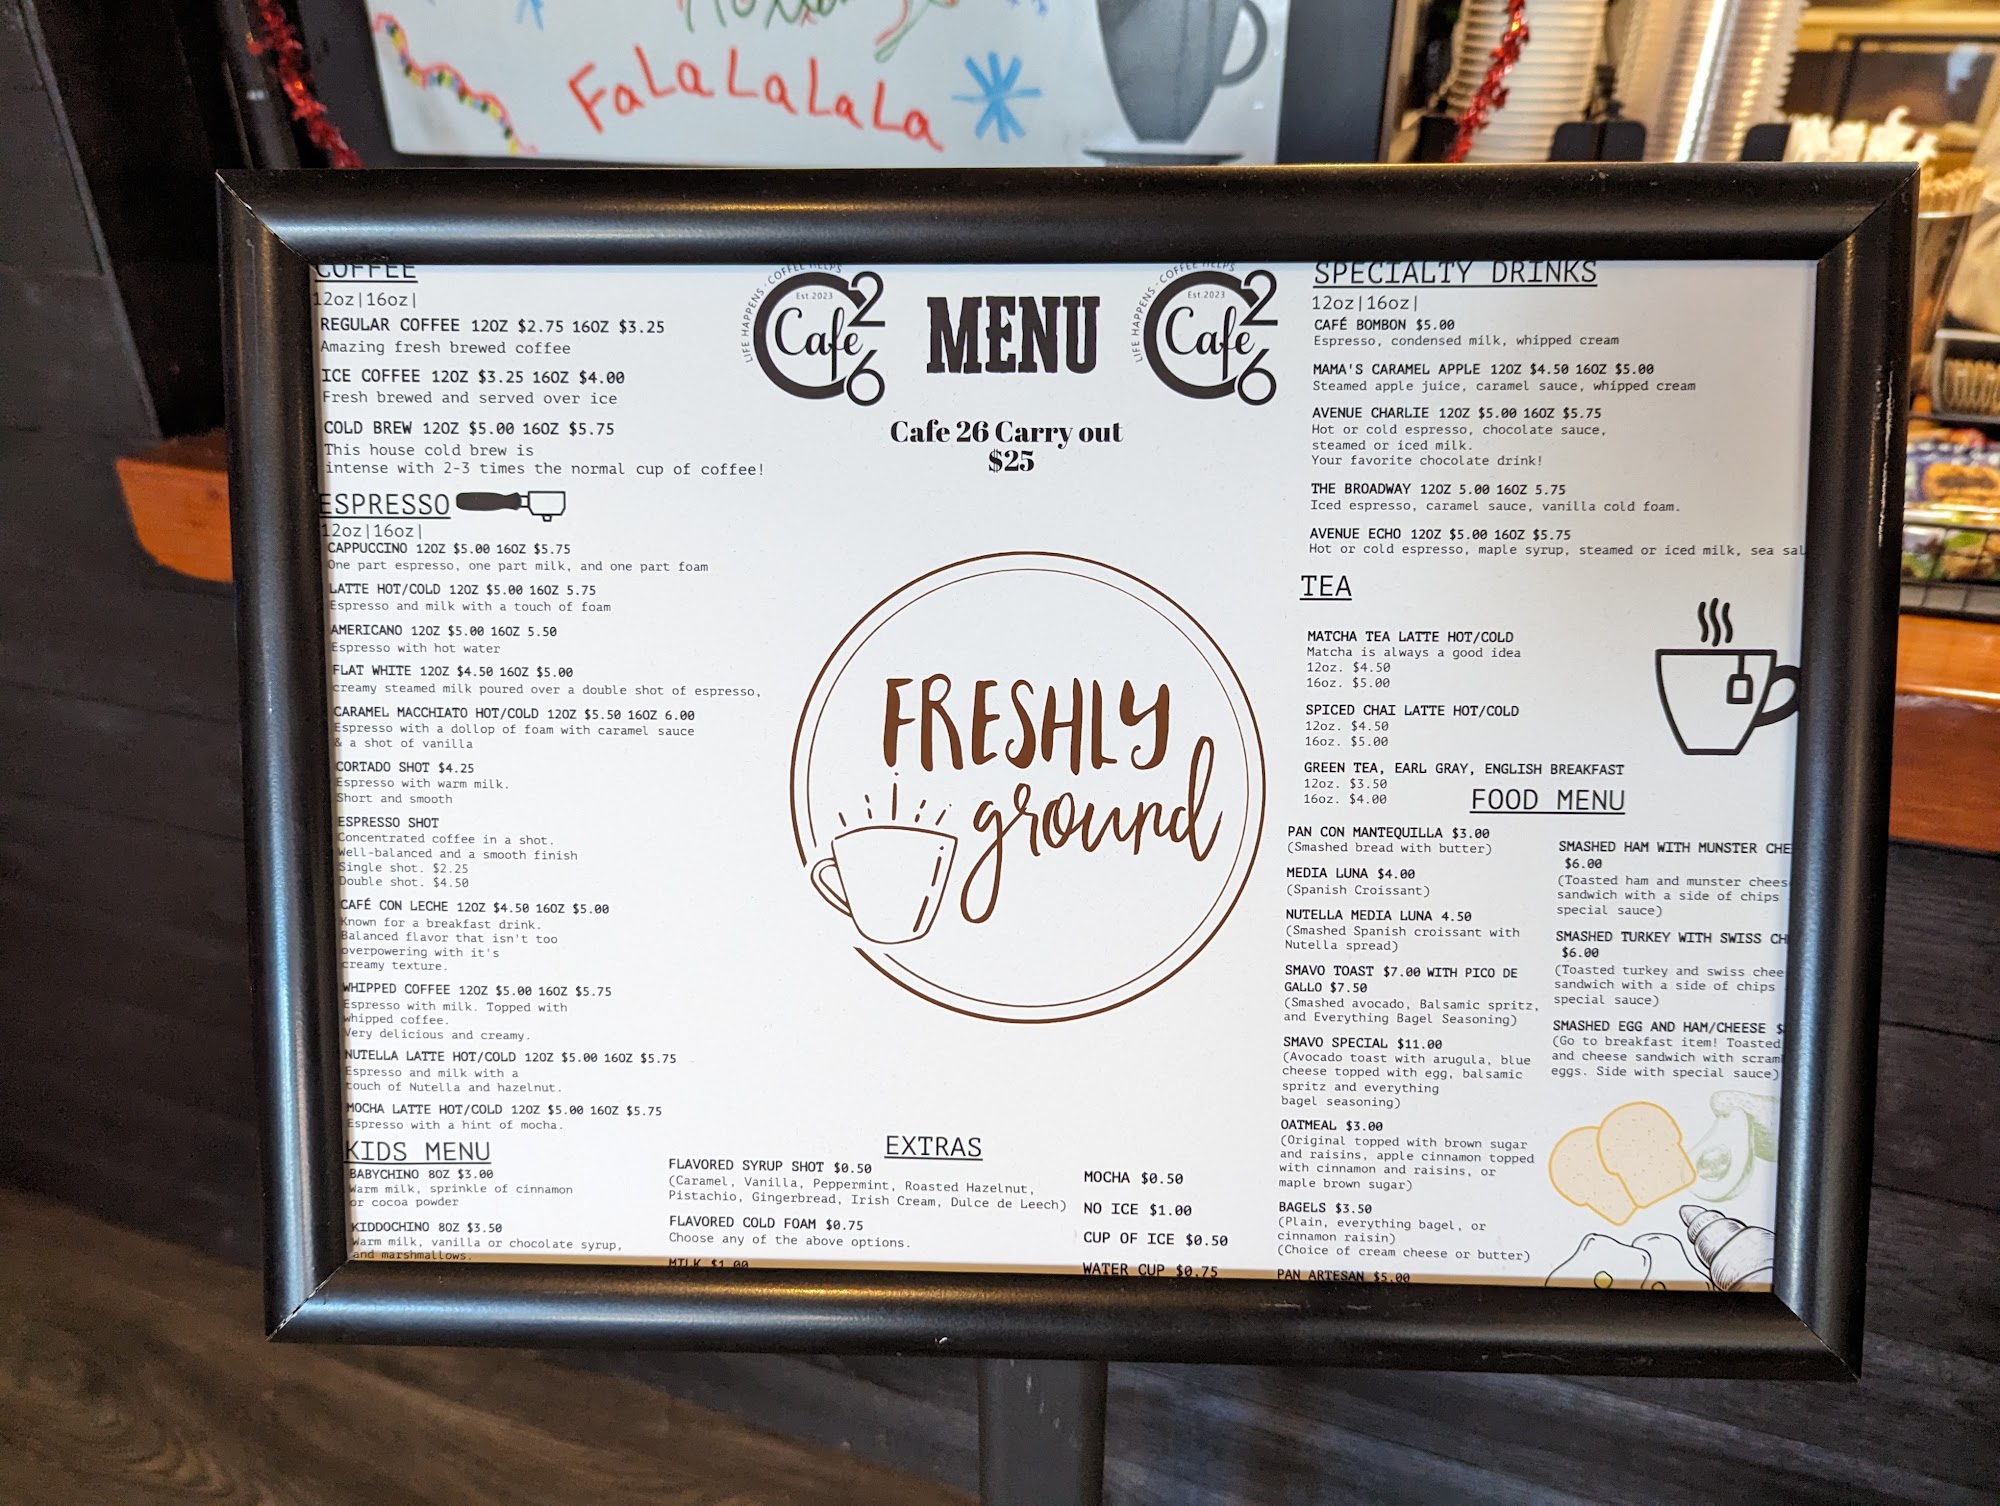 FaLaLaLaLa
COFFEE
12oz|16oz|
REGULAR COFFEE 12OZ $2.75 16OZ $3.25
Amazing fresh brewed coffee
ICE COFFEE 12OZ $3.25 16OZ $4.00
Fresh brewed and served over ice
COLD BREW 12OZ $5.00 16OZ $5.75
This house cold brew is
intense with 2-3 times the normal cup of coffee!
ESPRESSO
12oz|16oz|
CAPPUCCINO 12OZ $5.00 16OZ $5.75
One part espresso, one part milk, and one part foam
LATTE HOT/COLD 12OZ $5.00 16OZ 5.75
Espresso and milk with a touch of foam
AMERICANO 12OZ $5.00 16OZ 5.50
Espresso with hot water
FLAT WHITE 12OZ $4.50 16OZ $5.00
creamy steamed milk poured over a double shot of espresso,
CARAMEL MACCHIATO HOT/COLD 12OZ $5.50 16OZ 6.00
Espresso with a dollop of foam with caramel sauce
& a shot of vanilla
CORTADO SHOT $4.25
Espresso with warm milk.
Short and smooth
ESPRESSO SHOT
Concentrated coffee in a shot.
Well-balanced and a smooth finish
Single shot. $2.25
Double shot. $4.50
CAFÉ CON LECHE 12OZ $4.50 16OZ $5.00
Known for a breakfast drink.
Balanced flavor that isn't too
overpowering with it's
creamy texture.
WHIPPED COFFEE 12OZ $5.00 16OZ $5.75
Espresso with milk. Topped with
whipped coffee.
Very delicious and creamy.
NUTELLA LATTE HOT/COLD 12OZ $5.00 16OZ $5.75
Espresso and milk with a
touch of Nutella and hazelnut.
MOCHA LATTE HOT/COLD 12OZ $5.00 16OZ $5.75
Espresso with a hint of mocha.
KIDS MENU
BABYCHINO 8OZ $3.00
Warm milk, sprinkle of cinnamon
or cocoa powder
KIDDOCHINO 8OZ $3.50
Warm milk, vanilla or chocolate syrup,
and marshmallows.
LIFE HAPPENS · COFFEE HELPS
Est.2023
Cafe 26
MENU
LIFE HAPPENS · COFFEE HELPS
Est.2023
Cafe 26
Cafe 26 Carry out
$25
FRESHLY
ground
EXTRAS
FLAVORED SYRUP SHOT $0.50
(Caramel, Vanilla, Peppermint, Roasted Hazelnut,
Pistachio, Gingerbread, Irish Cream, Dulce de Leech)
FLAVORED COLD FOAM $0.75
Choose any of the above options.
MILK $1.00
MOCHA $0.50
NO ICE $1.00
CUP OF ICE $0.50
WATER CUP $0.75
SPECIALTY DRINKS
12oz|16oz|
CAFÉ BOMBON $5.00
Espresso, condensed milk, whipped cream
MAMA'S CARAMEL APPLE 12OZ $4.50 16OZ $5.00
Steamed apple juice, caramel sauce, whipped cream
AVENUE CHARLIE 12OZ $5.00 16OZ $5.75
Hot or cold espresso, chocolate sauce,
steamed or iced milk.
Your favorite chocolate drink!
THE BROADWAY 12OZ 5.00 16OZ 5.75
Iced espresso, caramel sauce, vanilla cold foam.
AVENUE ECHO 12OZ $5.00 16OZ $5.75
Hot or cold espresso, maple syrup, steamed or iced milk, sea sal
TEA
MATCHA TEA LATTE HOT/COLD
Matcha is always a good idea
12oz. $4.50
16oz. $5.00
SPICED CHAI LATTE HOT/COLD
12oz. $4.50
16oz. $5.00
GREEN TEA, EARL GRAY, ENGLISH BREAKFAST
12oz. $3.50
16oz. $4.00
FOOD MENU
PAN CON MANTEQUILLA $3.00
(Smashed bread with butter)
MEDIA LUNA $4.00
(Spanish Croissant)
NUTELLA MEDIA LUNA 4.50
(Smashed Spanish croissant with
Nutella spread)
SMAVO TOAST $7.00 WITH PICO DE
GALLO $7.50
(Smashed avocado, Balsamic spritz,
and Everything Bagel Seasoning)
SMAVO SPECIAL $11.00
(Avocado toast with arugula, blue
cheese topped with egg, balsamic
spritz and everything
bagel seasoning)
OATMEAL $3.00
(Original topped with brown sugar
and raisins, apple cinnamon topped
with cinnamon and raisins, or
maple brown sugar)
BAGELS $3.50
(Plain, everything bagel, or
cinnamon raisin)
(Choice of cream cheese or butter)
PAN ARTESAN $5.00
SMASHED HAM WITH MUNSTER CHE
$6.00
(Toasted ham and munster chees
sandwich with a side of chips
special sauce)
SMASHED TURKEY WITH SWISS CH
$6.00
(Toasted turkey and swiss chee
sandwich with a side of chips
special sauce)
SMASHED EGG AND HAM/CHEESE $
(Go to breakfast item! Toasted
and cheese sandwich with scram
eggs. Side with special sauce)